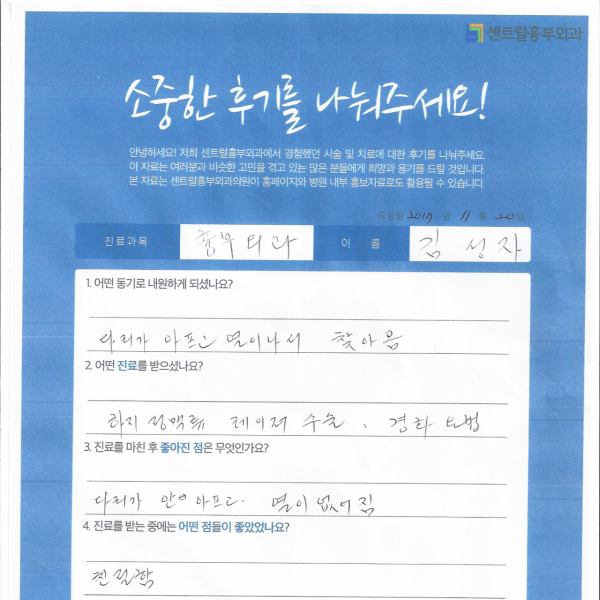 센트럴흉부외과
소중한 후기를 나눠주세요!
안녕하세요! 저희 센트럴흉부외과에서 경험했던 시술 및 치료에 대한 후기를 나눠주세요
이 자료는 여러분과 비슷한 고민을 겪고 있는 많은 분들에게 희망과 용기를 드릴 것입니다.
본 자료는 센트럴흉부외과의원이 홈페이지와 병원 내부 홍보자료로도 활용될 수 있습니다.
작성일 2017 년 11 월 20 일
진료과목 흉부외과 이 름 김성자
1. 어떤 동기로 내원하게 되셨나요?
다리가 아프고 열이나서 찾아옴
2. 어떤 진료를 받으셨나요?
하지정맥류 레이저 수술. 경화요법
3. 진료를 마친 후 좋아진 점은 무엇인가요?
다리가 안 아프고. 열이 없어짐
4. 진료를 받는 중에는 어떤 점들이 좋았었나요?
친절함